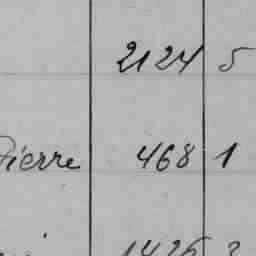 2124 5
Pierre 468 1
1426